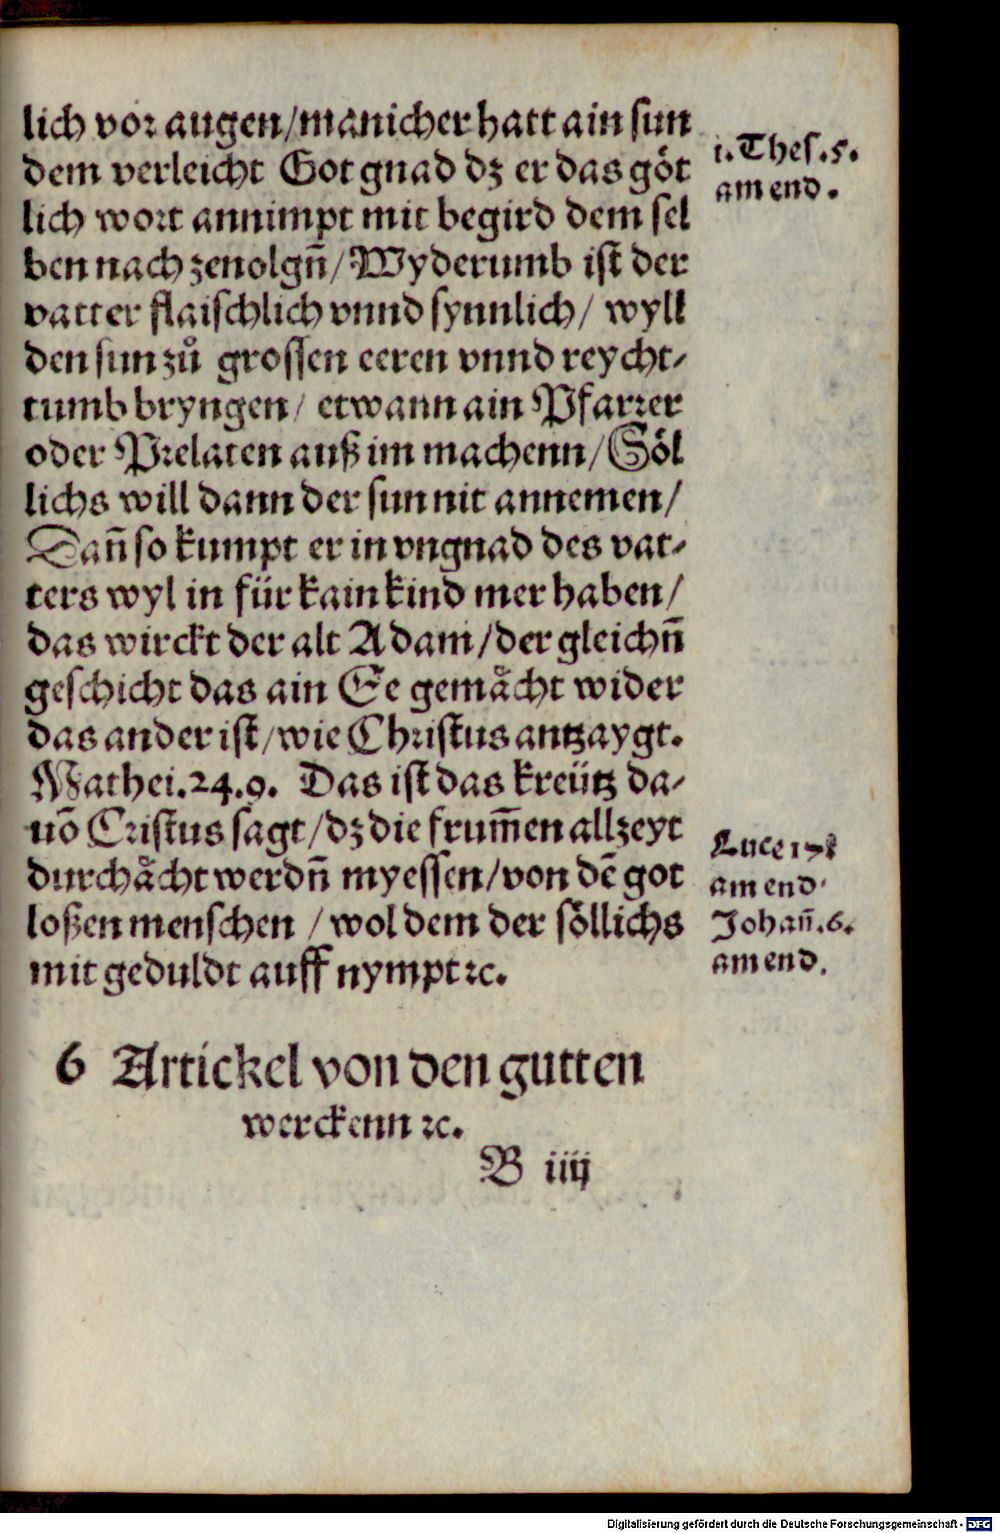 lich vor augen/manicher hatt ain sun
dem verleicht Got gnad dz er das göt
lich wort annimpt mit begird dem sel
ben nach zenolgñ/Wyderumb ist der
vatter flaischlich vnnd synnlich/ wyll
den sun zů grossen eeren vnnd reycht-
tumb bryngen/ etwann ain Pfarrer
oder Prelaten auß im machenn/Söl
lichs will dann der sun nit annemen/
Dañ so kumpt er in vngnad des vat-
ters wyl in für kain kind mer haben/
das wirckt der alt Adam/der gleichñ
geschicht das ain Ee gemächt wider
das ander ist/wie Christus antzaygt.
Mathei.24.9. Das ist das kreütz da-
uō Cristus sagt/dz die frum̄en allzeyt
durchächt werdñ myessen/von dē got
loßen menschen /wol dem der söllichs
mit geduldt auff nympt ꝛc.
1.Thes.5.
am end.
Luce 17
am end
Johañ.6.
am end.
6 Artickel von den gutten
werckenn ꝛc.
B iiij
Digitalisierung gefördert durch die Deutsche Forschungsgemeinschaft - DFG